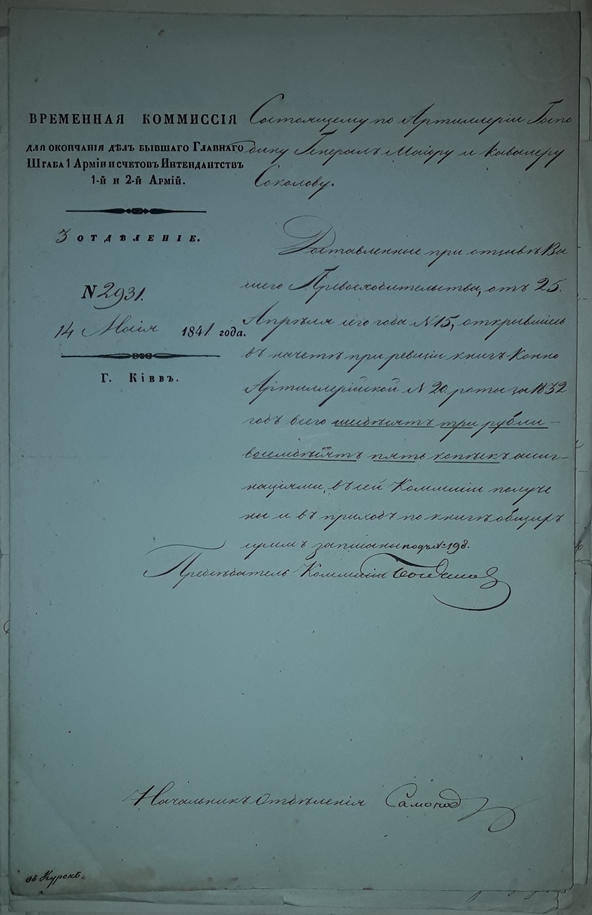 ВРЕМЕННАЯ КОММИССІЯ
для окончанія дѣлъ бывшаго Главнаго
Штаба 1 Арміи и счетовъ Интендантствъ
1-й и 2-й Армій.
3 отдѣленіе.
N 2931.
14 Маія 1841 года.
Г. Кіевъ.
Состоящему по Артиллеріи Госпо
дину Генералъ Маіору и Кавалеру
Соколову.
Доставленные при отзывѣ Ва
шего Превосходительства, отъ 25.
Апрѣля сего года N 15, открывшіесь
въ начетѣ при ревизіи книгъ Конно
Артиллерійской N 20 роты за 1832
годъ всего шесдѣсятъ три рубли
восемдѣсятъ пять копѣекъ ассиг
націями, въ сей Коммисіи получе
ны и въ приходъ по книгѣ общихъ
суммъ записаны подъ № 198.
Предсѣдатель Коммисіи
Начальникъ Отдѣленія
въ Курскѣ.